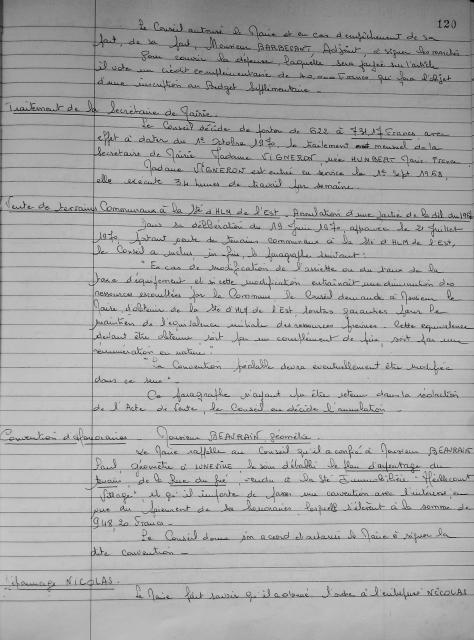 120
Le Conseil autorise le Maire et en cas d'empêchement de sa
part, de sa part, Monsieur BARBESANT Adjoint, à signer les marchés
Pour couvrir la dépense, laquelle sera payée sur l'article
il vote un crédit complémentaire de Francs qui fera l'objet
d'une inscription au Budget Supplémentaire.
Traitement de la Secrétaire de Mairie.
Le Conseil décide de porter de 622 à 731,17 Francs avec
effet à dater du 1er Octobre 1970, le traitement mensuel de la
Secrétaire de Mairie Madame VIGNERON née HUMBERT Marie
Madame VIGNERON est entrée en service le 1er Sept 1968,
elle exécute 34 heures de travail par semaine.
Vente de terrains Communaux à la Sté d'HLM de l'Est. Annulation d'une partie de la dél. du
Dans sa délibération du 19 Juin 1970, approuvée le 2 Juillet
1970 portant vente de terrains communaux à la Sté d'HLM de l'Est,
le Conseil a inclus, in fine, le paragraphe suivant :
"En cas de modification de l'assiette ou du taux de la
taxe d'équipement et si cette modification entraînait une diminution des
ressources escomptées par la Commune le Conseil demande à Monsieur le
Maire d'obtenir de la Sté d'HLM de l'Est, toutes garanties pour le
maintien de l'équivalence initiale des ressources prévues. Cette équivalence
devant être obtenue soit par un complément de prix, soit par une
rémunération en nature"
"La Convention préalable devra éventuellement être modifiée
dans ce sens"
Ce paragraphe n'ayant pu être retenu dans la rédaction
de l'Acte de Vente, le Conseil en décide l'annulation -
Convention d'honoraires - Monsieur BEAURAIN géomètre.
Le Maire rappelle au Conseil qu'il a confié à Monsieur BEAURAIN
Paul, géomètre à LUNEVILLE le soin d'établir le plan d'arpentage du
terrain, de la Rue du Pré, vendu à la Sté Immobilière "Heillecourt
Village" et qu'il importe de passer une convention avec l'intéressé en
vue du paiement de ses honoraires lesquels s'élèvent à la somme de
948,20 Francs -
Le Conseil donne son accord et autorise le Maire à signer la
dite convention -
NICOLAS.
Le Maire fait savoir qu'il a donné l'ordre à l'entreprise NICOLAS